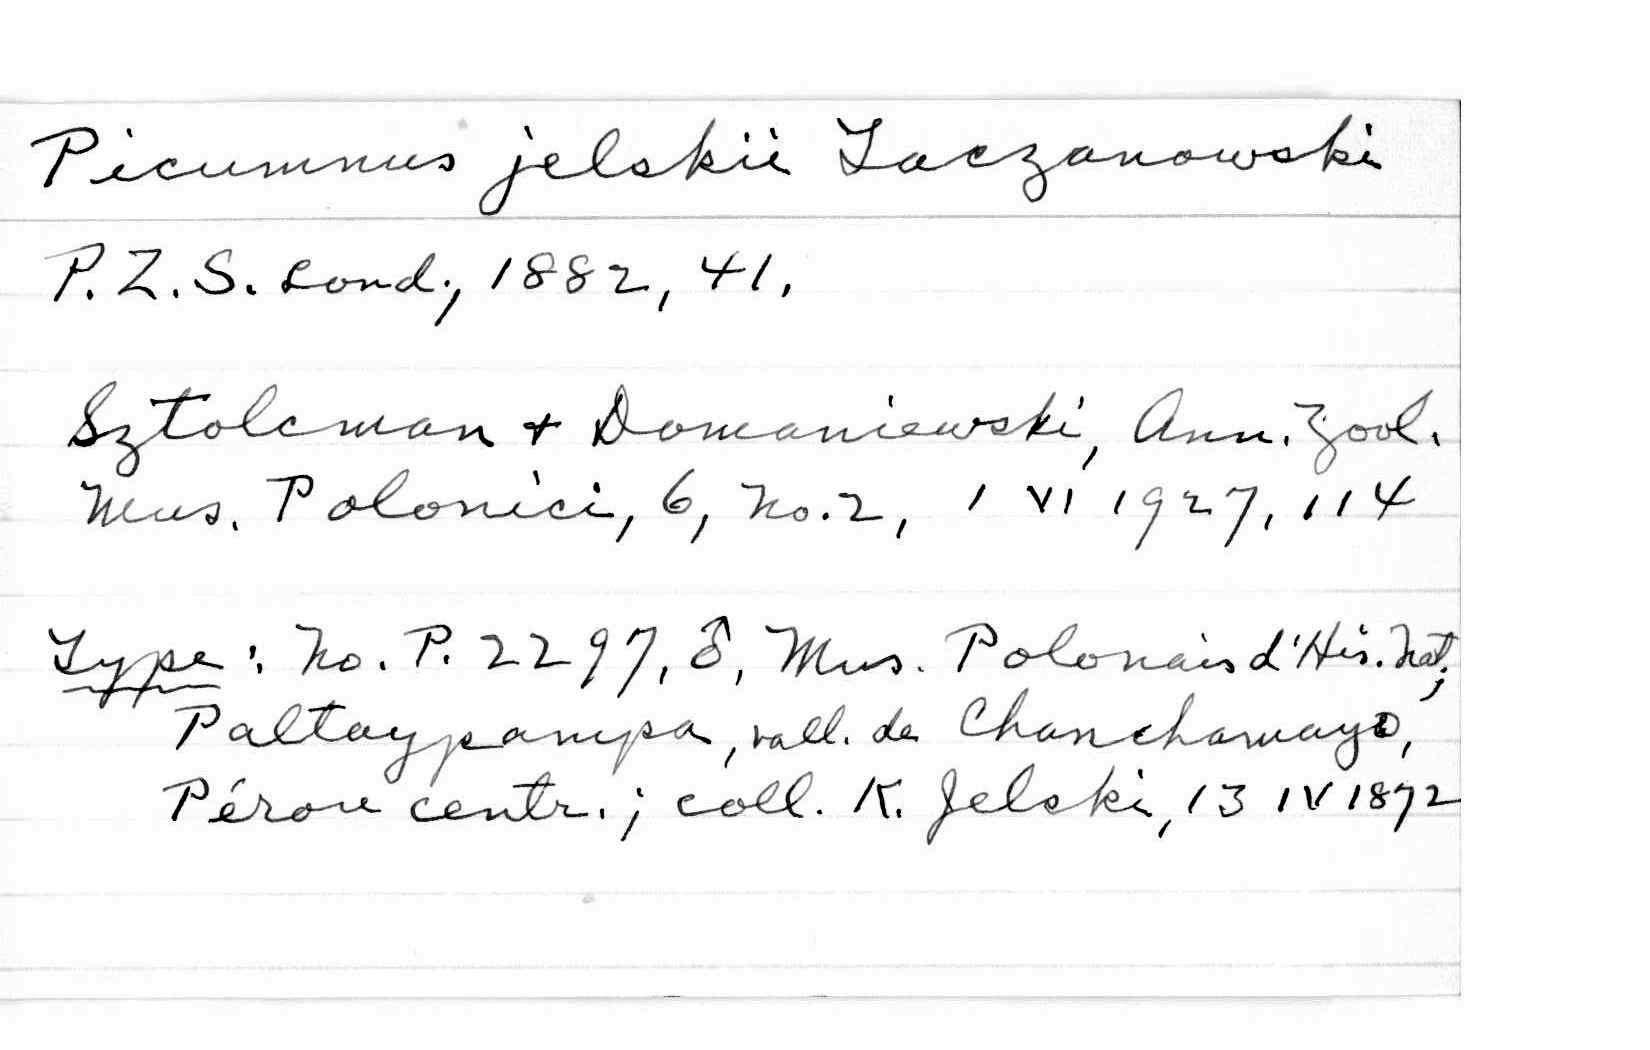 Picumnus jelskii Taczanowski
P.Z.S. Lond., 1882, 41.
Sztolcman + Domaniewski, Ann. Zool.
Mus. Polonici, 6, No. 2, 1 VI 1927, 114
Type: No. P. 2297, ♂, Mus. Polonais d'His. Nat.;
Paltaypampa, vall. de Chanchamayo,
Pérou centr.; coll. K. Jelski, 13 IV 1872